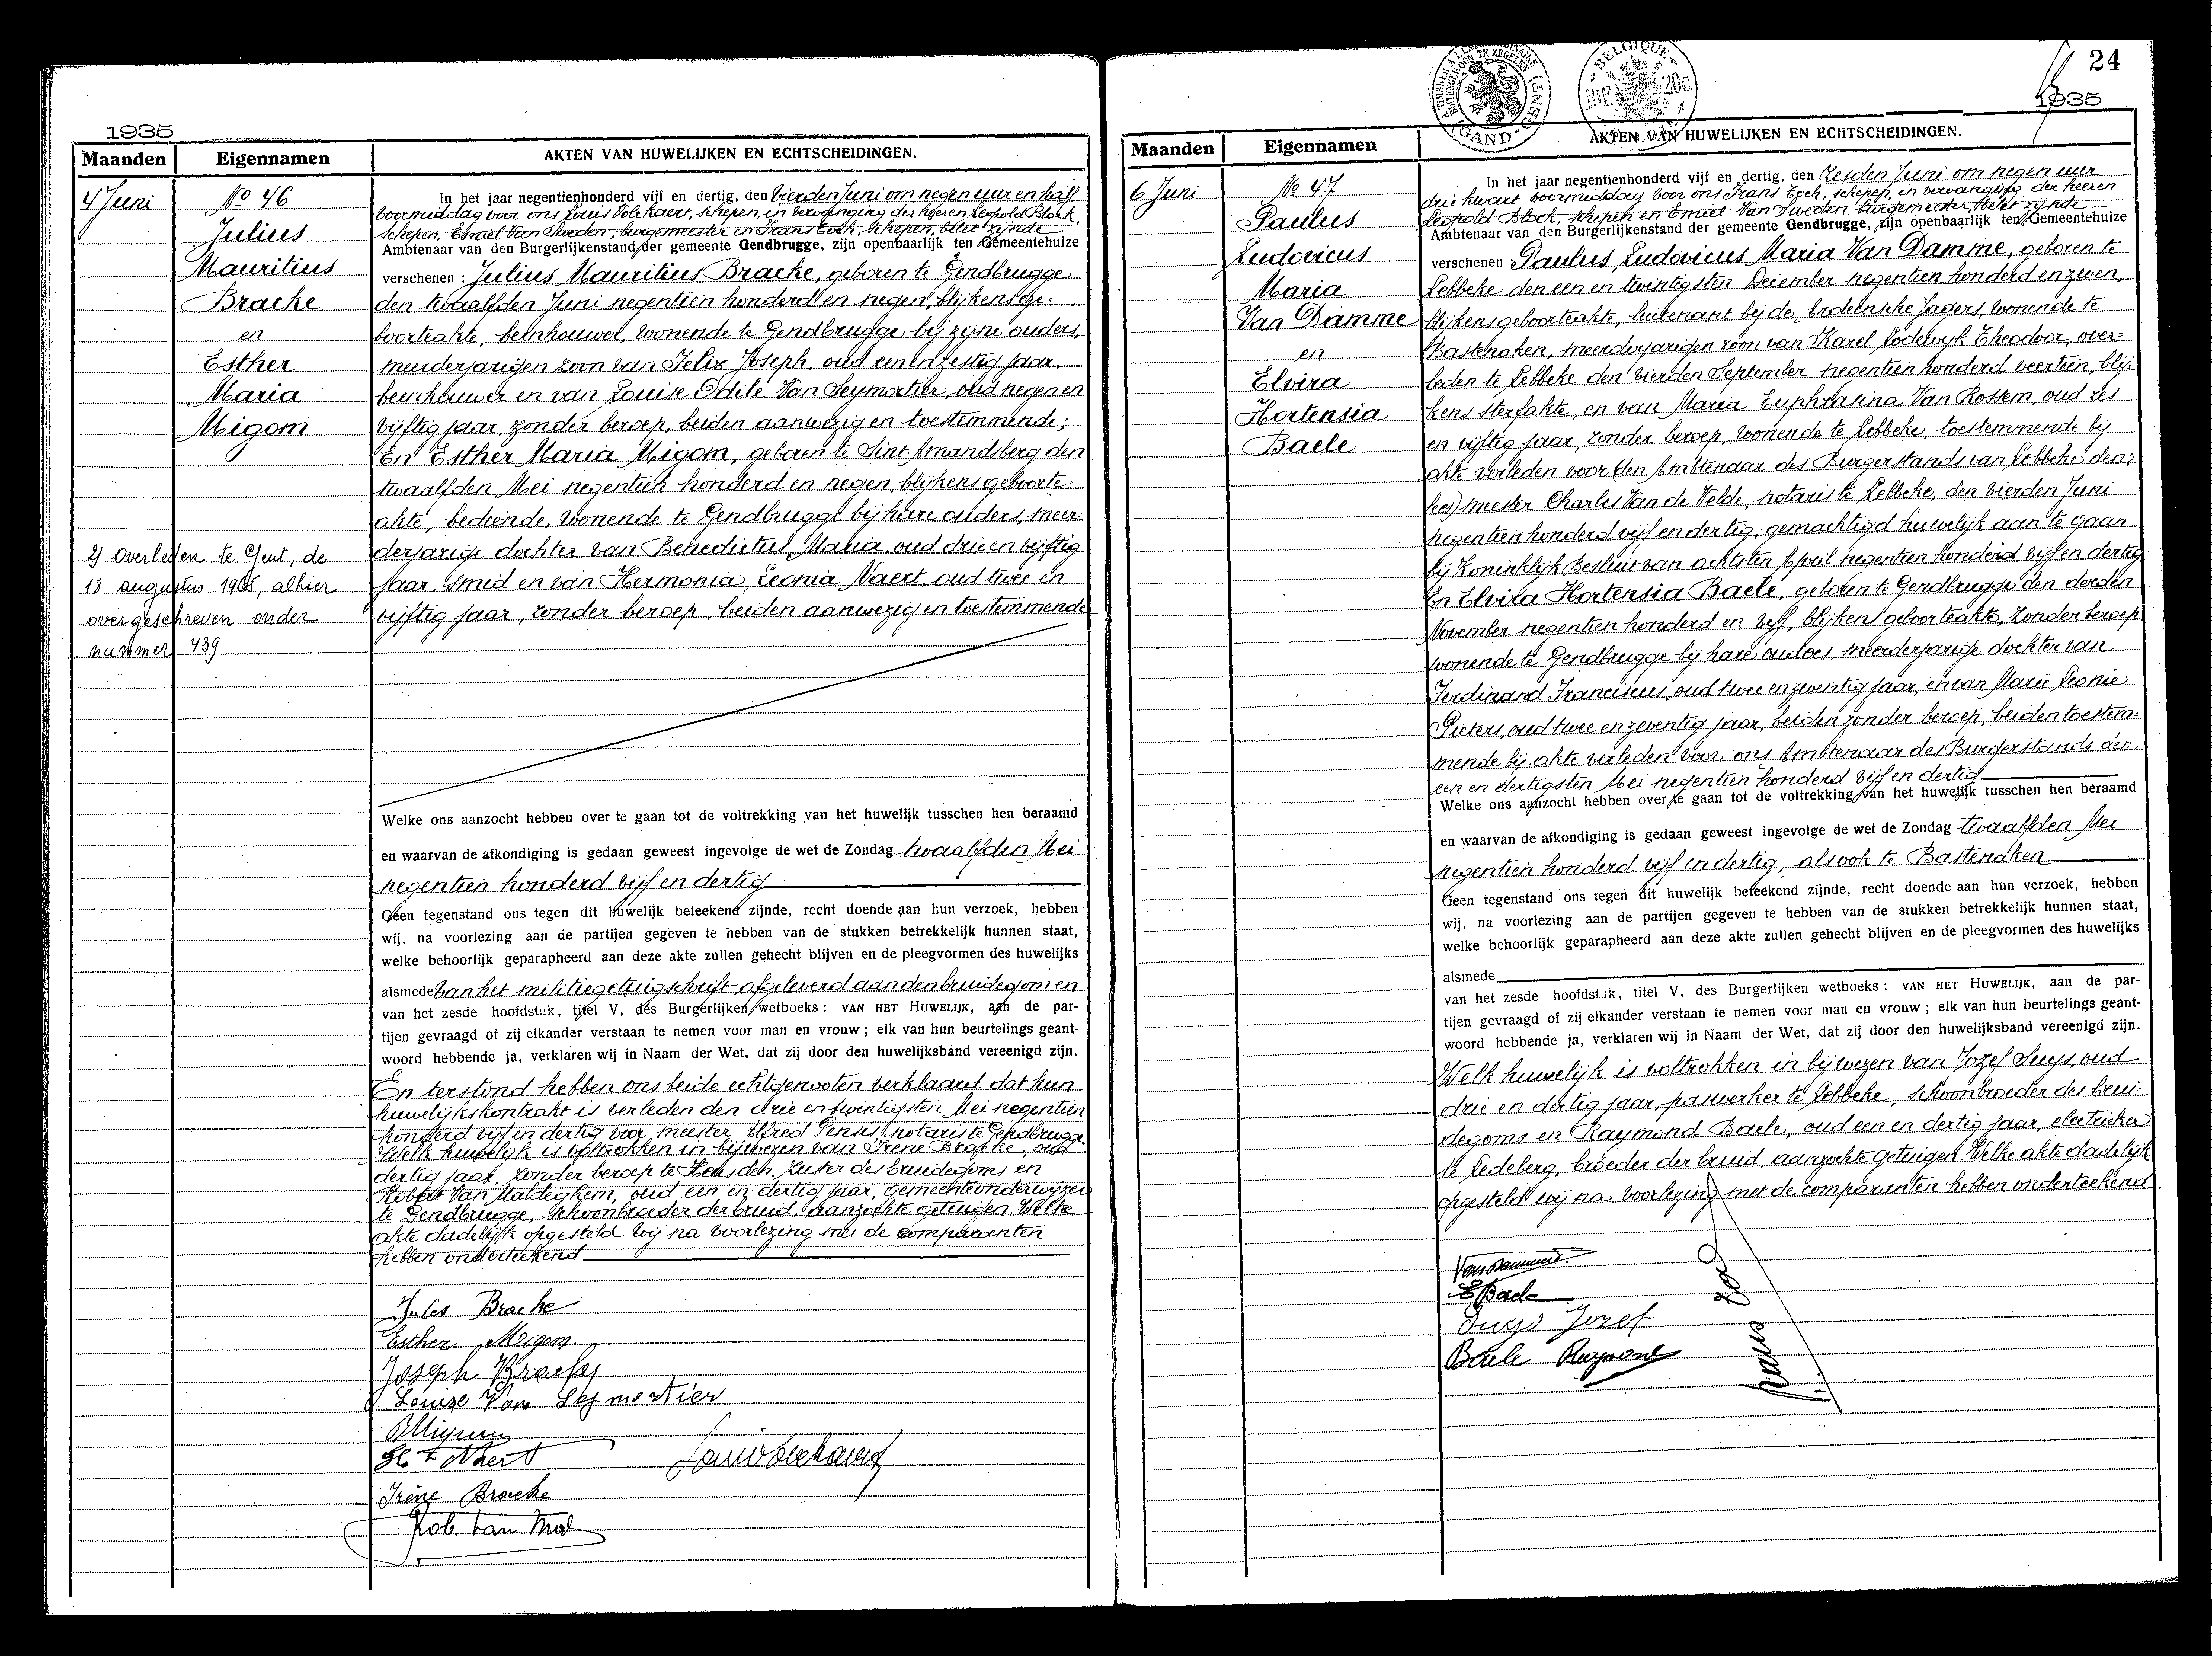 1935
Maanden Eigennamen AKTEN VAN HUWELIJKEN EN ECHTSCHEIDINGEN.
4 Juni
No 46
Julius
Mauritius
Bracke
en
Esther
Maria
Migom
2) overleden te Gent, de
18 augustus, alhier
overgeschreven onder
nummer 439
In het jaar negentienhonderd vijf en dertig, den vierden Juni om negen uur en half
voormiddag voor ons Louis Volckaert, schepen, in vervanging der heeren Leopold Block,
schepen, Emiel Van Sweden, burgemeester en Frans Eech, schepen, belet zijnde
Ambtenaar van den Burgerlijkenstand der gemeente Gendbrugge, zijn openbaarlijk ten Gemeentehuize
verschenen : Julius Mauritius Bracke, geboren te Gendbrugge
den twaalfden Juni negentien honderd en negen, blijkens ge-
boorteakte, beenhouwer, wonende te Gendbrugge bij zijne ouders,
meerderjarigen zoon van Felix Joseph, oud een en zestig jaar,
beenhouwer en van Louise Odile Van Seymortier, oud negen en
vijftig jaar, zonder beroep, beiden aanwezig en toestemmende;
En Esther Maria Migom, geboren te Sint Amandsberg den
twaalfden Mei negentien honderd en negen, blijkens geboorte-
akte, bediende, wonende te Gendbrugge bij hare ouders, meer-
derjarige dochter van Benedictus, Maria, oud drie en vijftig
jaar, smid en van Hermonia, Leonia Naert, oud twee en
vijftig jaar, zonder beroep, beiden aanwezig en toestemmende
Welke ons aanzocht hebben over te gaan tot de voltrekking van het huwelijk tusschen hen beraamd
en waarvan de afkondiging is gedaan geweest ingevolge de wet de Zondag twaalfden Mei
negentien honderd vijf en dertig
Geen tegenstand ons tegen dit huwelijk beteekend zijnde, recht doende aan hun verzoek, hebben
wij, na voorlezing aan de partijen gegeven te hebben van de stukken betrekkelijk hunnen staat,
welke behoorlijk geparapheerd aan deze akte zullen gehecht blijven en de pleegvormen des huwelijks
alsmede van het militiegetuigschrift afgeleverd aan den bruidegom en
van het zesde hoofdstuk, titel V, des Burgerlijken wetboeks : VAN HET HUWELIJK, aan de par-
tijen gevraagd of zij elkander verstaan te nemen voor man en vrouw ; elk van hun beurtelings geant-
woord hebbende ja, verklaren wij in Naam der Wet, dat zij door den huwelijksband vereenigd zijn.
En terstond hebben ons beide echtgenooten verklaard dat hun
huwelijkskontrakt is verleden den drie en twintigsten Mei negentien
honderd vijf en dertig voor meester Alfred notaris te Gendbrugge.
Welk huwelijk is voltrokken in bijwezen van Irene Bracke, oud
dertig jaar, zonder beroep te Heusden, zuster des bruidegoms en
Robert Van Maldeghem, oud een en dertig jaar, gemeenteonderwijzer
te Gendbrugge, schoonbroeder der bruid, aanzochte getuigen. Welke
akte dadelijk opgesteld wij na voorlezing met de comparanten
hebben onderteekend
Jules Bracke
Esther Migom
Joseph Bracke
Louise Van Seymortier
BMigom
H L Naert
Irène Bracke
Rob Van Mal
24
1935
GAND - GENT
BELGIQUE
Maanden Eigennamen AKTEN VAN HUWELIJKEN EN ECHTSCHEIDINGEN.
6 Juni
No 47
Paulus
Ludovicus
Maria
Van Damme
en
Elvira
Hortensia
Baele
In het jaar negentienhonderd vijf en dertig, den zesden Juni om negen uur
drie kwart voormiddag voor ons Frans Eech, schepen, in vervanging der heeren
Leopold Block, schepen en Emiel Van Sweden, burgemeester, belet zijnde
Ambtenaar van den Burgerlijkenstand der gemeente Gendbrugge, zijn openbaarlijk ten Gemeentehuize
verschenen : Paulus Ludovicus Maria Van Damme, geboren te
Lebbeke den een en twintigsten December negentien honderd en zeven,
blijkens geboorteakte, luitenant bij de Ardeensche Jagers, wonende te
Bastenaken, meerderjarigen zoon van Karel Lodewijk Theodoor, over-
leden te Lebbeke den vierden September negentien honderd veertien, blij-
kens sterfakte, en van Maria Euphrasina Van Rossem, oud zes
en vijftig jaar, zonder beroep, wonende te Lebbeke, toestemmende bij
akte verleden voor (den Ambtenaar des Burgerstands van Lebbeke den;
lees) meester Charles Van de Velde, notaris te Lebbeke, den vierden Juni
negentien honderd vijf en dertig, gemachtigd huwelijk aan te gaan
bij Koninklijk Besluit van achtsten April negentien honderd vijf en dertig
En Elvira Hortensia Baele, geboren te Gendbrugge den derden
November negentien honderd en vijf, blijkens geboorteakte, zonder beroep
wonende te Gendbrugge bij hare ouders, meerderjarige dochter van
Ferdinand Franciscus, oud twee en zeventig jaar, en van Marie Leonie
Pieters, oud twee en zeventig jaar, beiden zonder beroep, beiden toestem-
mende bij akte verleden voor ons Ambtenaar des Burgerstands den
een en dertigsten Mei negentien honderd vijf en dertig
Welke ons aanzocht hebben over te gaan tot de voltrekking van het huwelijk tusschen hen beraamd
en waarvan de afkondiging is gedaan geweest ingevolge de wet de Zondag twaalfden Mei
negentien honderd vijf en dertig, alsook te Bastenaken
Geen tegenstand ons tegen dit huwelijk beteekend zijnde, recht doende aan hun verzoek, hebben
wij, na voorlezing aan de partijen gegeven te hebben van de stukken betrekkelijk hunnen staat,
welke behoorlijk geparapheerd aan deze akte zullen gehecht blijven en de pleegvormen des huwelijks
alsmede
van het zesde hoofdstuk, titel V, des Burgerlijken wetboeks : VAN HET HUWELIJK, aan de par-
tijen gevraagd of zij elkander verstaan te nemen voor man en vrouw ; elk van hun beurtelings geant-
woord hebbende ja, verklaren wij in Naam der Wet, dat zij door den huwelijksband vereenigd zijn.
Welk huwelijk is voltrokken in bijwezen van Jozef Suys, oud
drie en dertig jaar, paswerker te Lebbeke, schoonbroeder des brui-
degoms en Raymond Baele, oud een en dertig jaar, electrieker
te Ledeberg, broeder der bruid, aanzochte getuigen. Welke akte dadelijk
opgesteld wij na voorlezing met de comparanten hebben onderteekend
VanDamme
EBaele
Suys Jozef
Baele Raymond